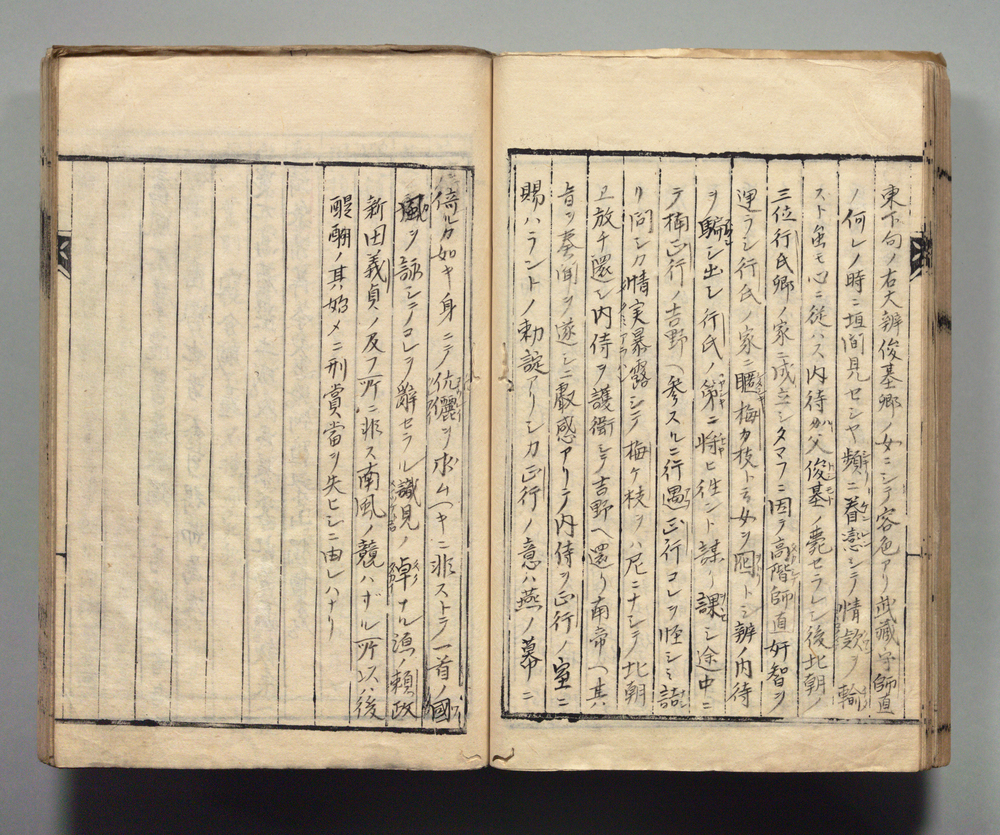 東下向ノ右大辨俊基卿ノ女ニシテ容色アリ武藏守師直
ノ何レノ時ニ垣間見セシヤ頻ニ眷戀シテ情款ヲ輸
スト虽モ心ニ從ハス内待カ父俊基ノ薨セラレシ後北朝ノ
三位行氏卿ノ家ニ成立シタマフニ因テ高階師直奸智ヲ
運ラシ行氏ノ家ニ暱梅カ枝ト云女ヲ囮トシ辨ノ内待
ヲ騙シ出シ行氏ノ第ニ将ヒ往ント謀リ課シ途中ニ
テ楠正行ノ吉野ヘ參スルニ行遇正行コレヲ怪シミ詰
リ問シカ情実暴露シテ梅ケ枝ヲハ尼ニナシテ北朝
ヱ放チ還シ内侍ヲ護衛シテ吉野ヘ還リ南帝ヘ其
旨ヲ奏聞ヲ遂シニ叡感アリテ内侍ヲ正行ノ室ニ
賜ハラントノ勅諚アリシカ正行ノ意ハ燕ノ幕ニ
倚ルカ如キ身ニテ伉儷ヲ求ムヘキニ非ストテ一首ノ國
風ヲ詠シテコレヲ辭セラル識見ノ卓ナル源ノ頼政
新田義貞ノ及フ所ニ非ス南風ノ競ハザル所以ハ後
醍醐ノ其始メニ刑賞當ヲ失ヒシニ由レハナリ